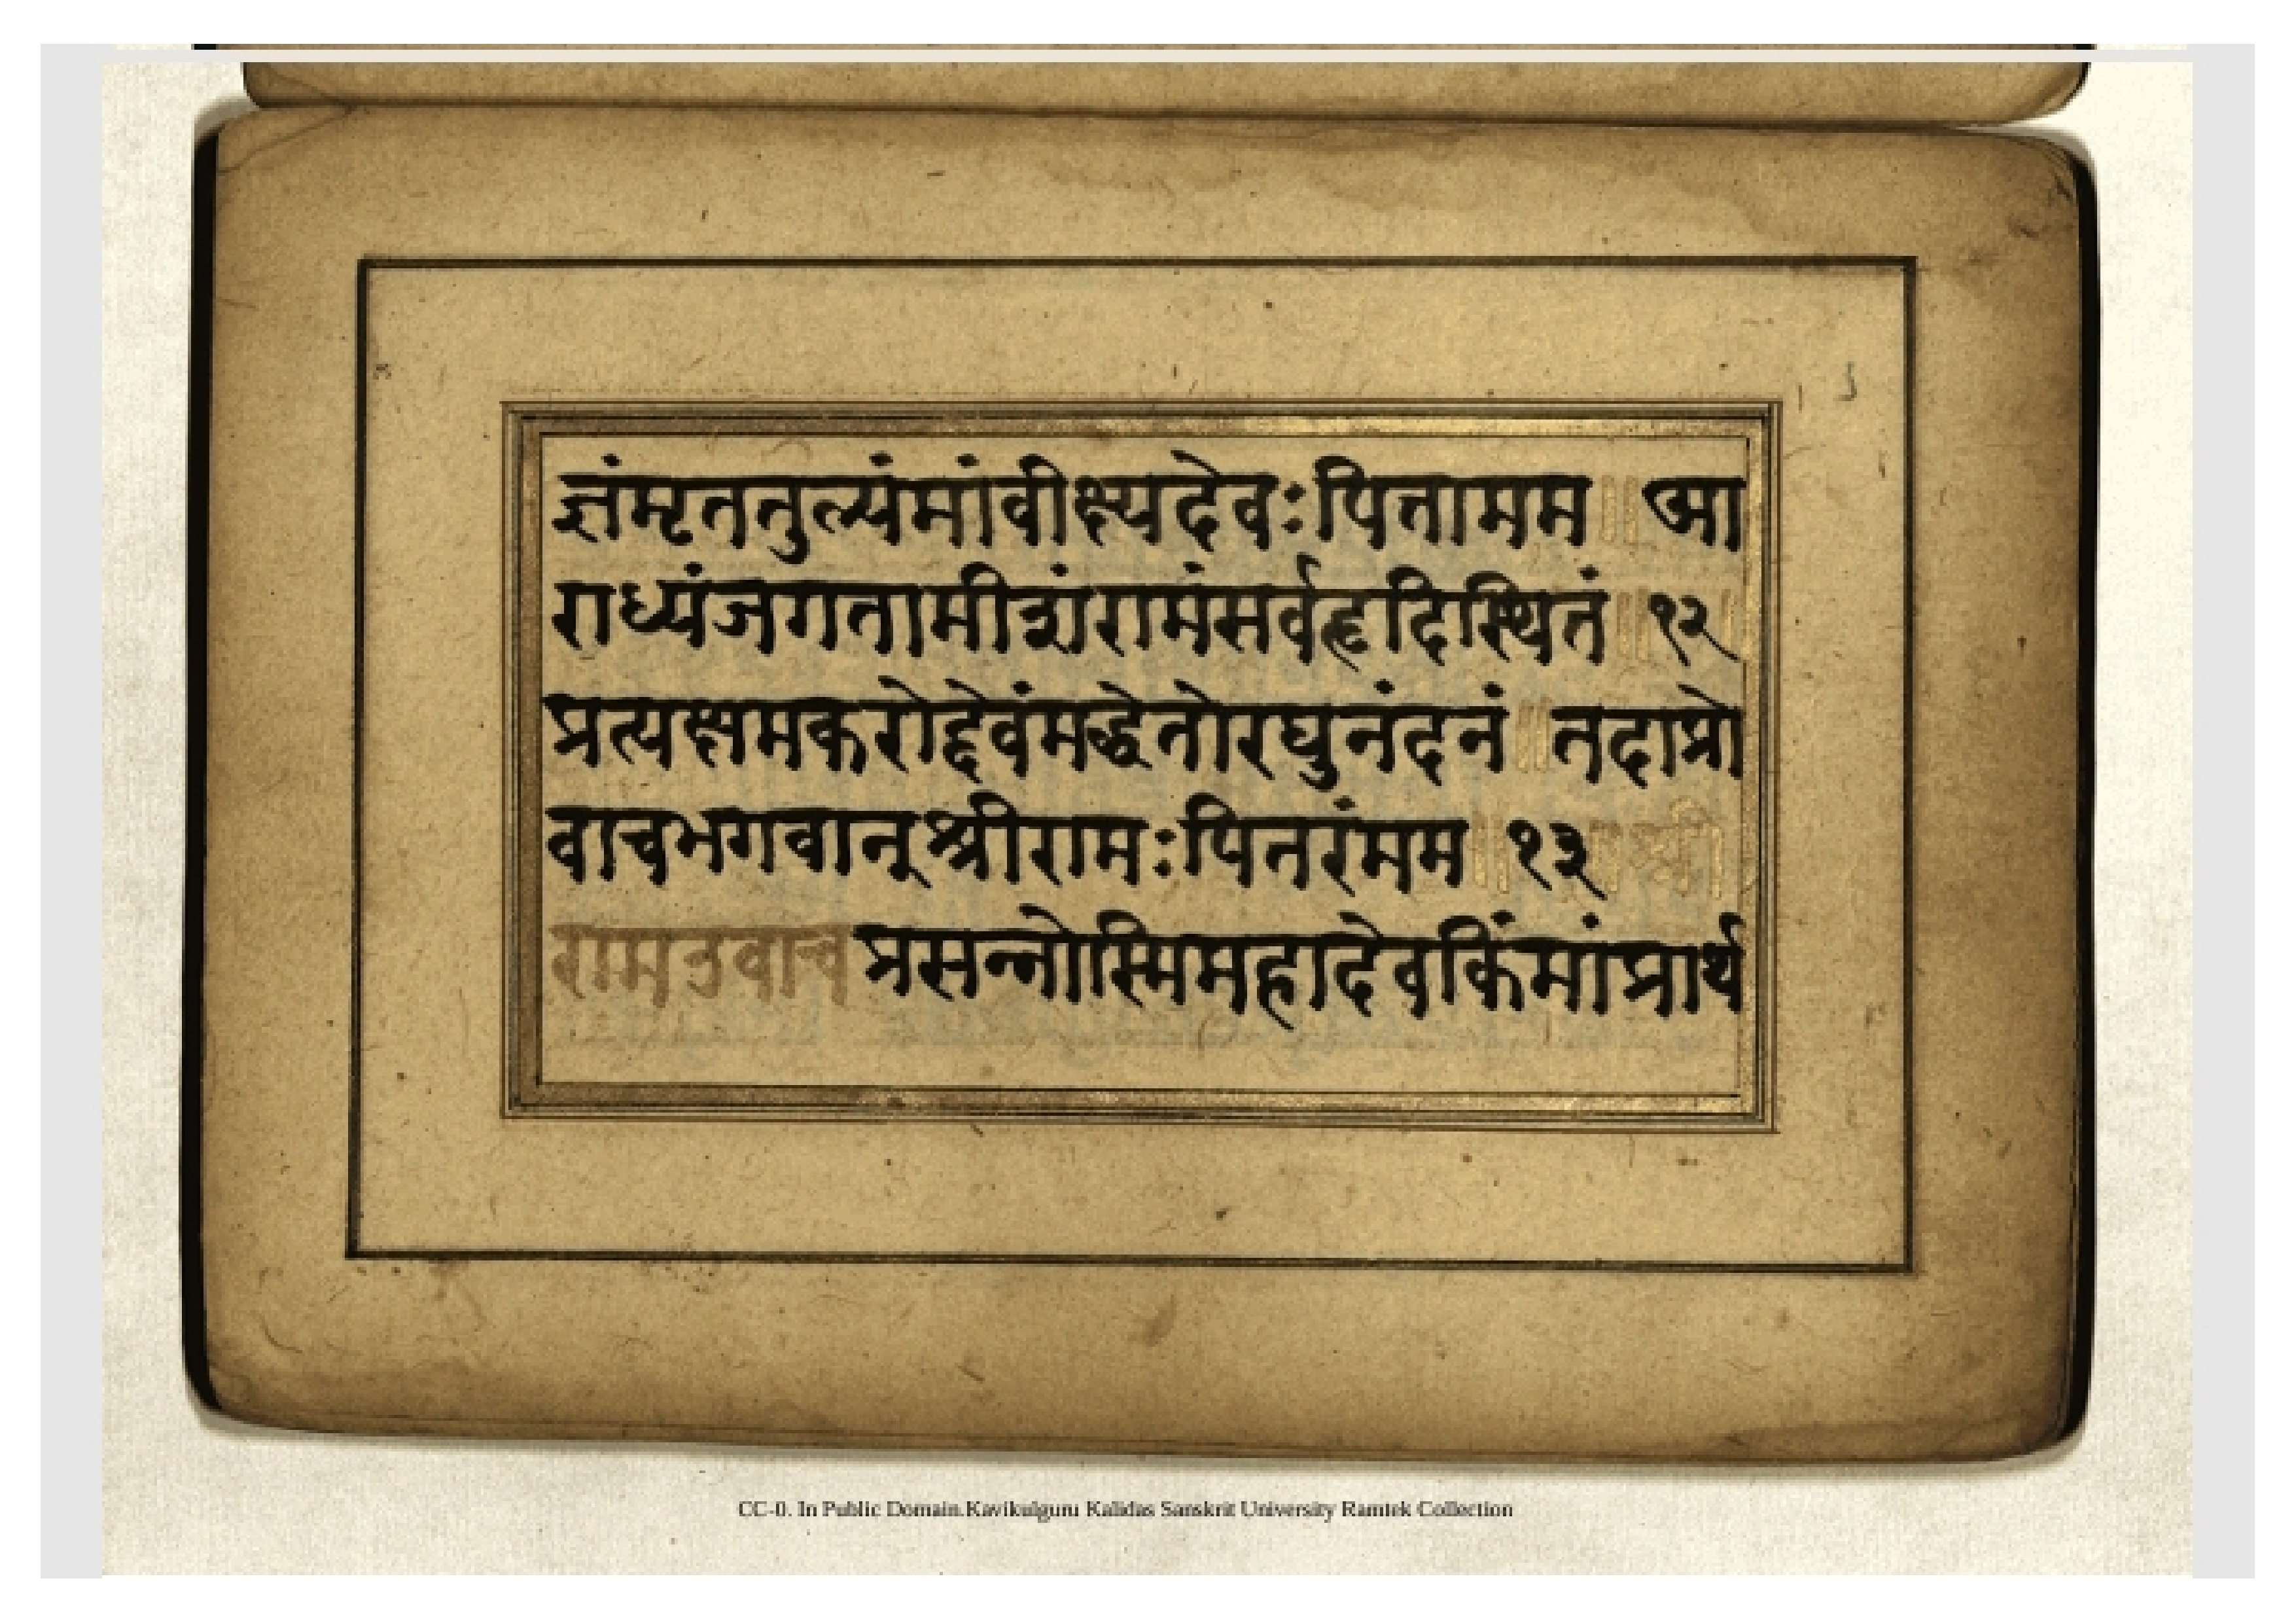 ज्ञंमृततुल्यंमांवीक्ष्यदेवःपितामम ॥ आ
राध्यंजगतामीशंरामंसर्वहृदिस्थितं ॥ १२
प्रत्यक्षमकरोद्देवंमद्धेतोरघुनंदनं ॥ तदाप्रो
वाचभगवान्श्रीरामःपितरंमम ॥ १३ ॥ श्री
रामउवाच प्रसन्नोस्मिमहादेवकिंमांप्रार्थ
CC-0. In Public Domain.Kavikulguru Kalidas Sanskrit University Ramtek Collection